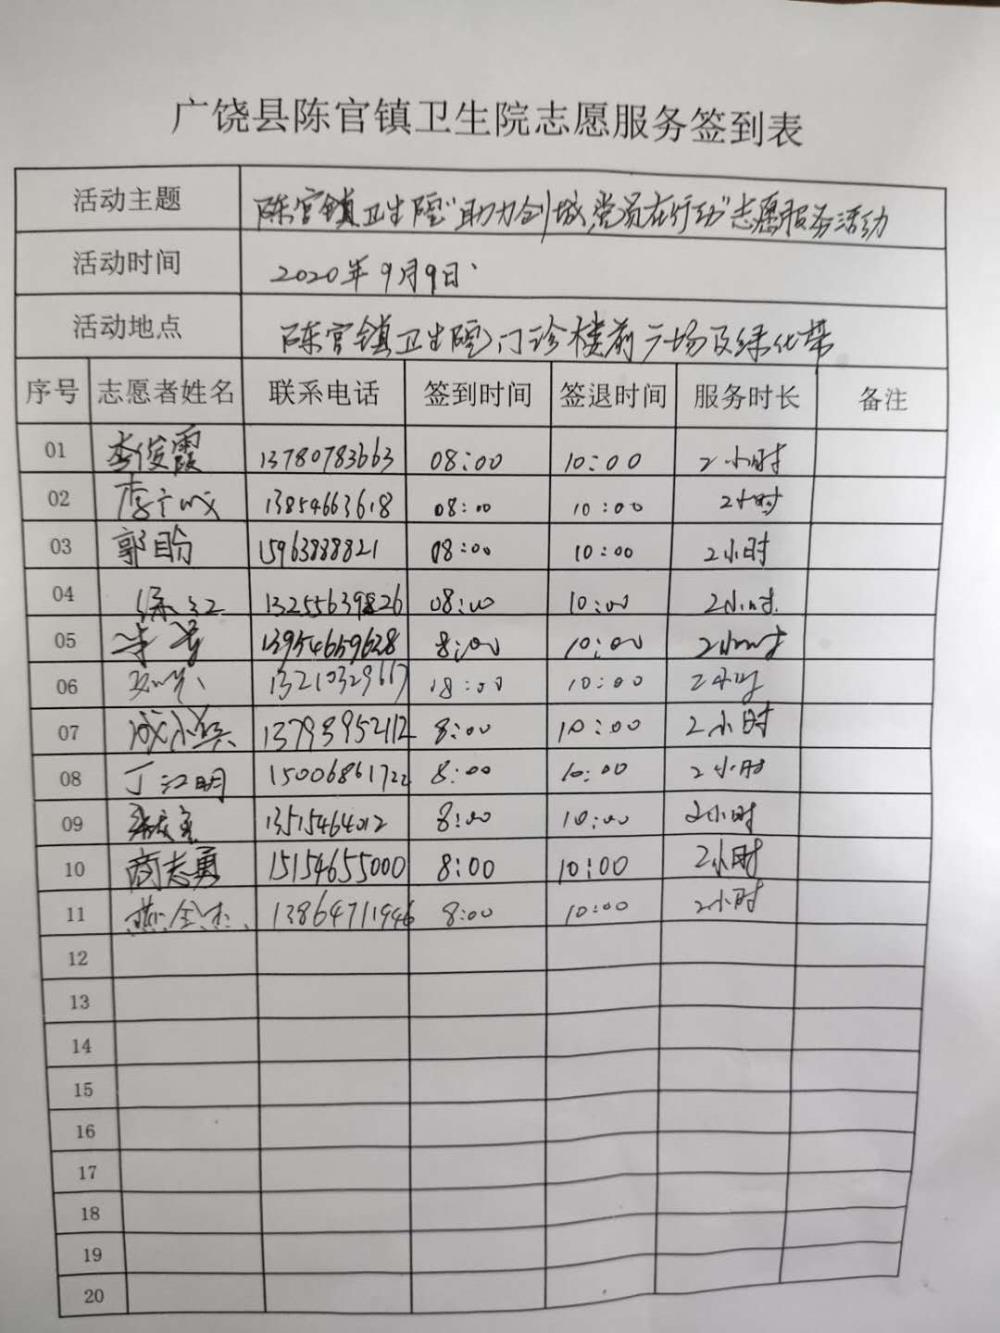 广饶县陈官镇卫生院志愿服务签到表
活动主题 陈官镇卫生院"助力创城党员在行动"志愿服务活动
活动时间 2020年9月9日
活动地点 陈官镇卫生院门诊楼前广场及绿化带
序号 志愿者姓名 联系电话 签到时间 签退时间 服务时长 备注
01 李俊霞 13780783663 08:00 10:00 2小时
02 13854663618 08:00 10:00 2小时
03 郭盼 15963888821 08:00 10:00 2小时
04 13255639826 08:00 10:00 2小时
05 13954659628 8:00 10:00 2小时
06 13210329617 08:00 10:00 2小时
07 成小兵 13793952112 8:00 10:00 2小时
08 丁江明 15006861722 8:00 10:00 2小时
09 13515464012 8:00 10:00 2小时
10 商志勇 15154655000 8:00 10:00 2小时
11 13864711946 8:00 10:00 2小时
12
13
14
15
16
17
18
19
20